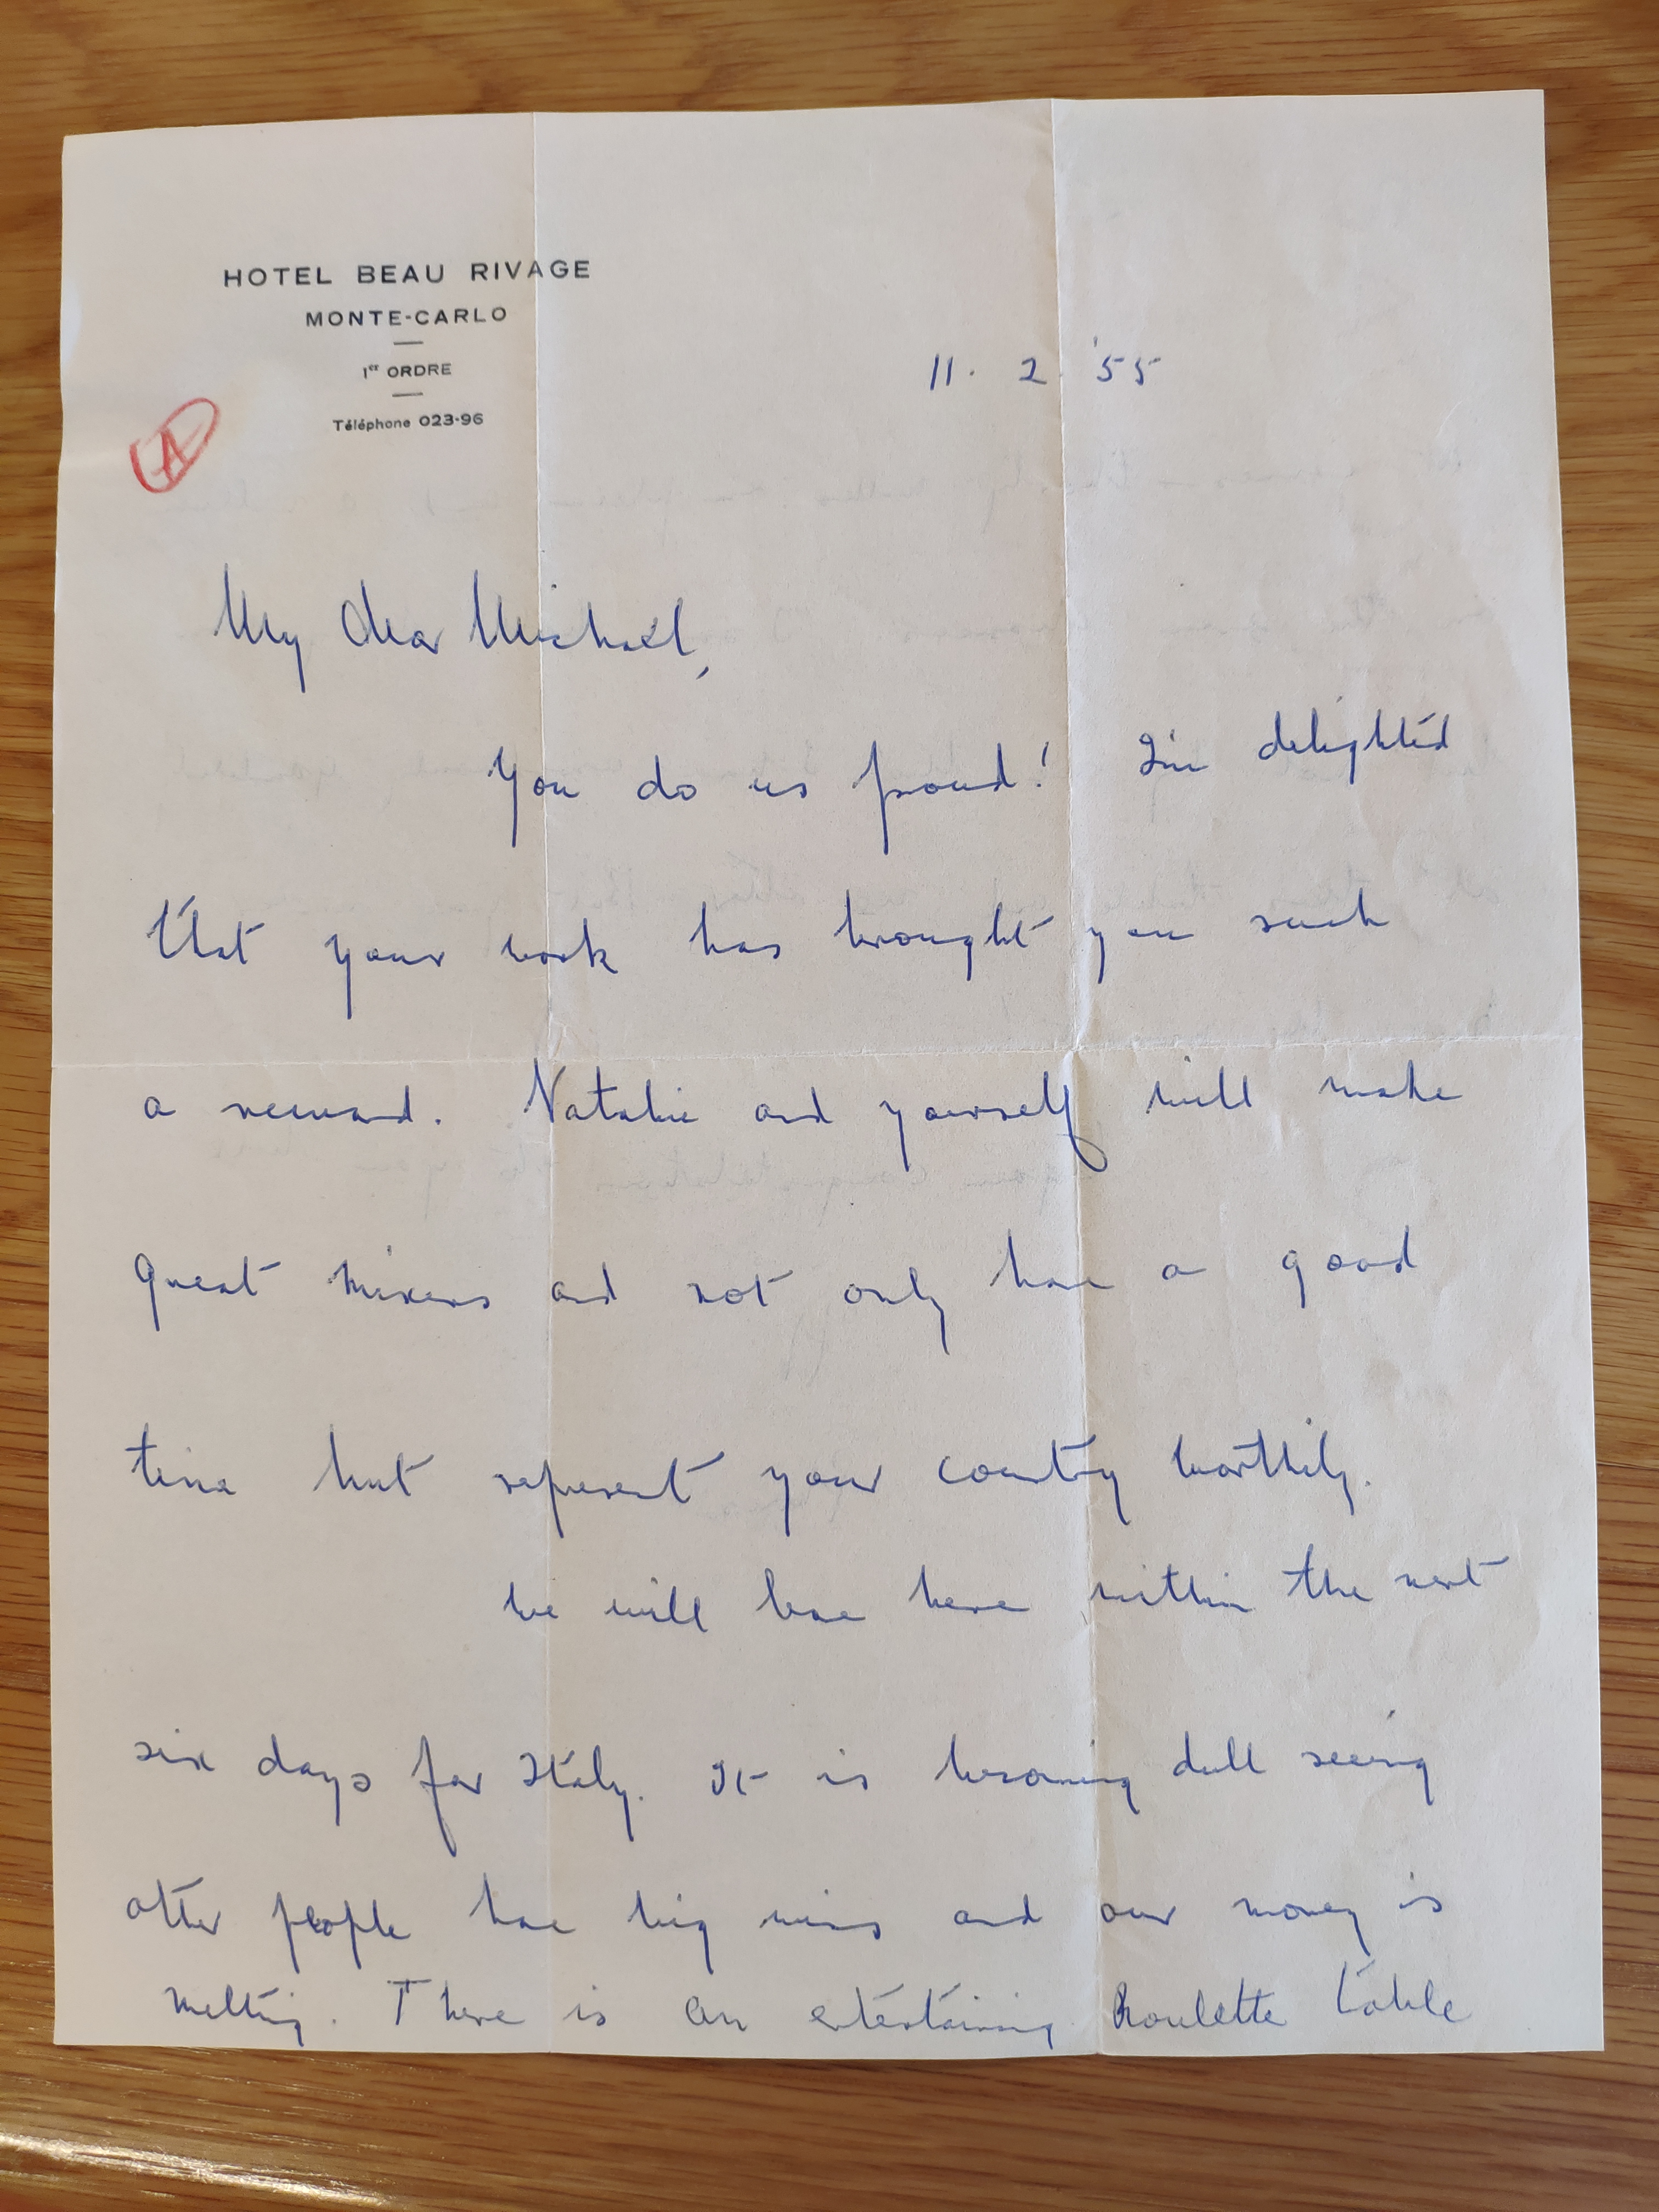 HOTEL BEAU RIVAGE
MONTE-CARLO
1er ORDRE
Téléphone 023-96
11. 2. '55
A
My Dear Michael,
You do us proud! I'm delighted
that your work has brought you such
a reward. Natalie and yourself will make
great mixers and not only have a good
time but represent your country worthily.
We will leave here within the next
six days for Italy. It is becoming dull seeing
other people have big wins and our money is
melting. There is an entertaining Roulette table